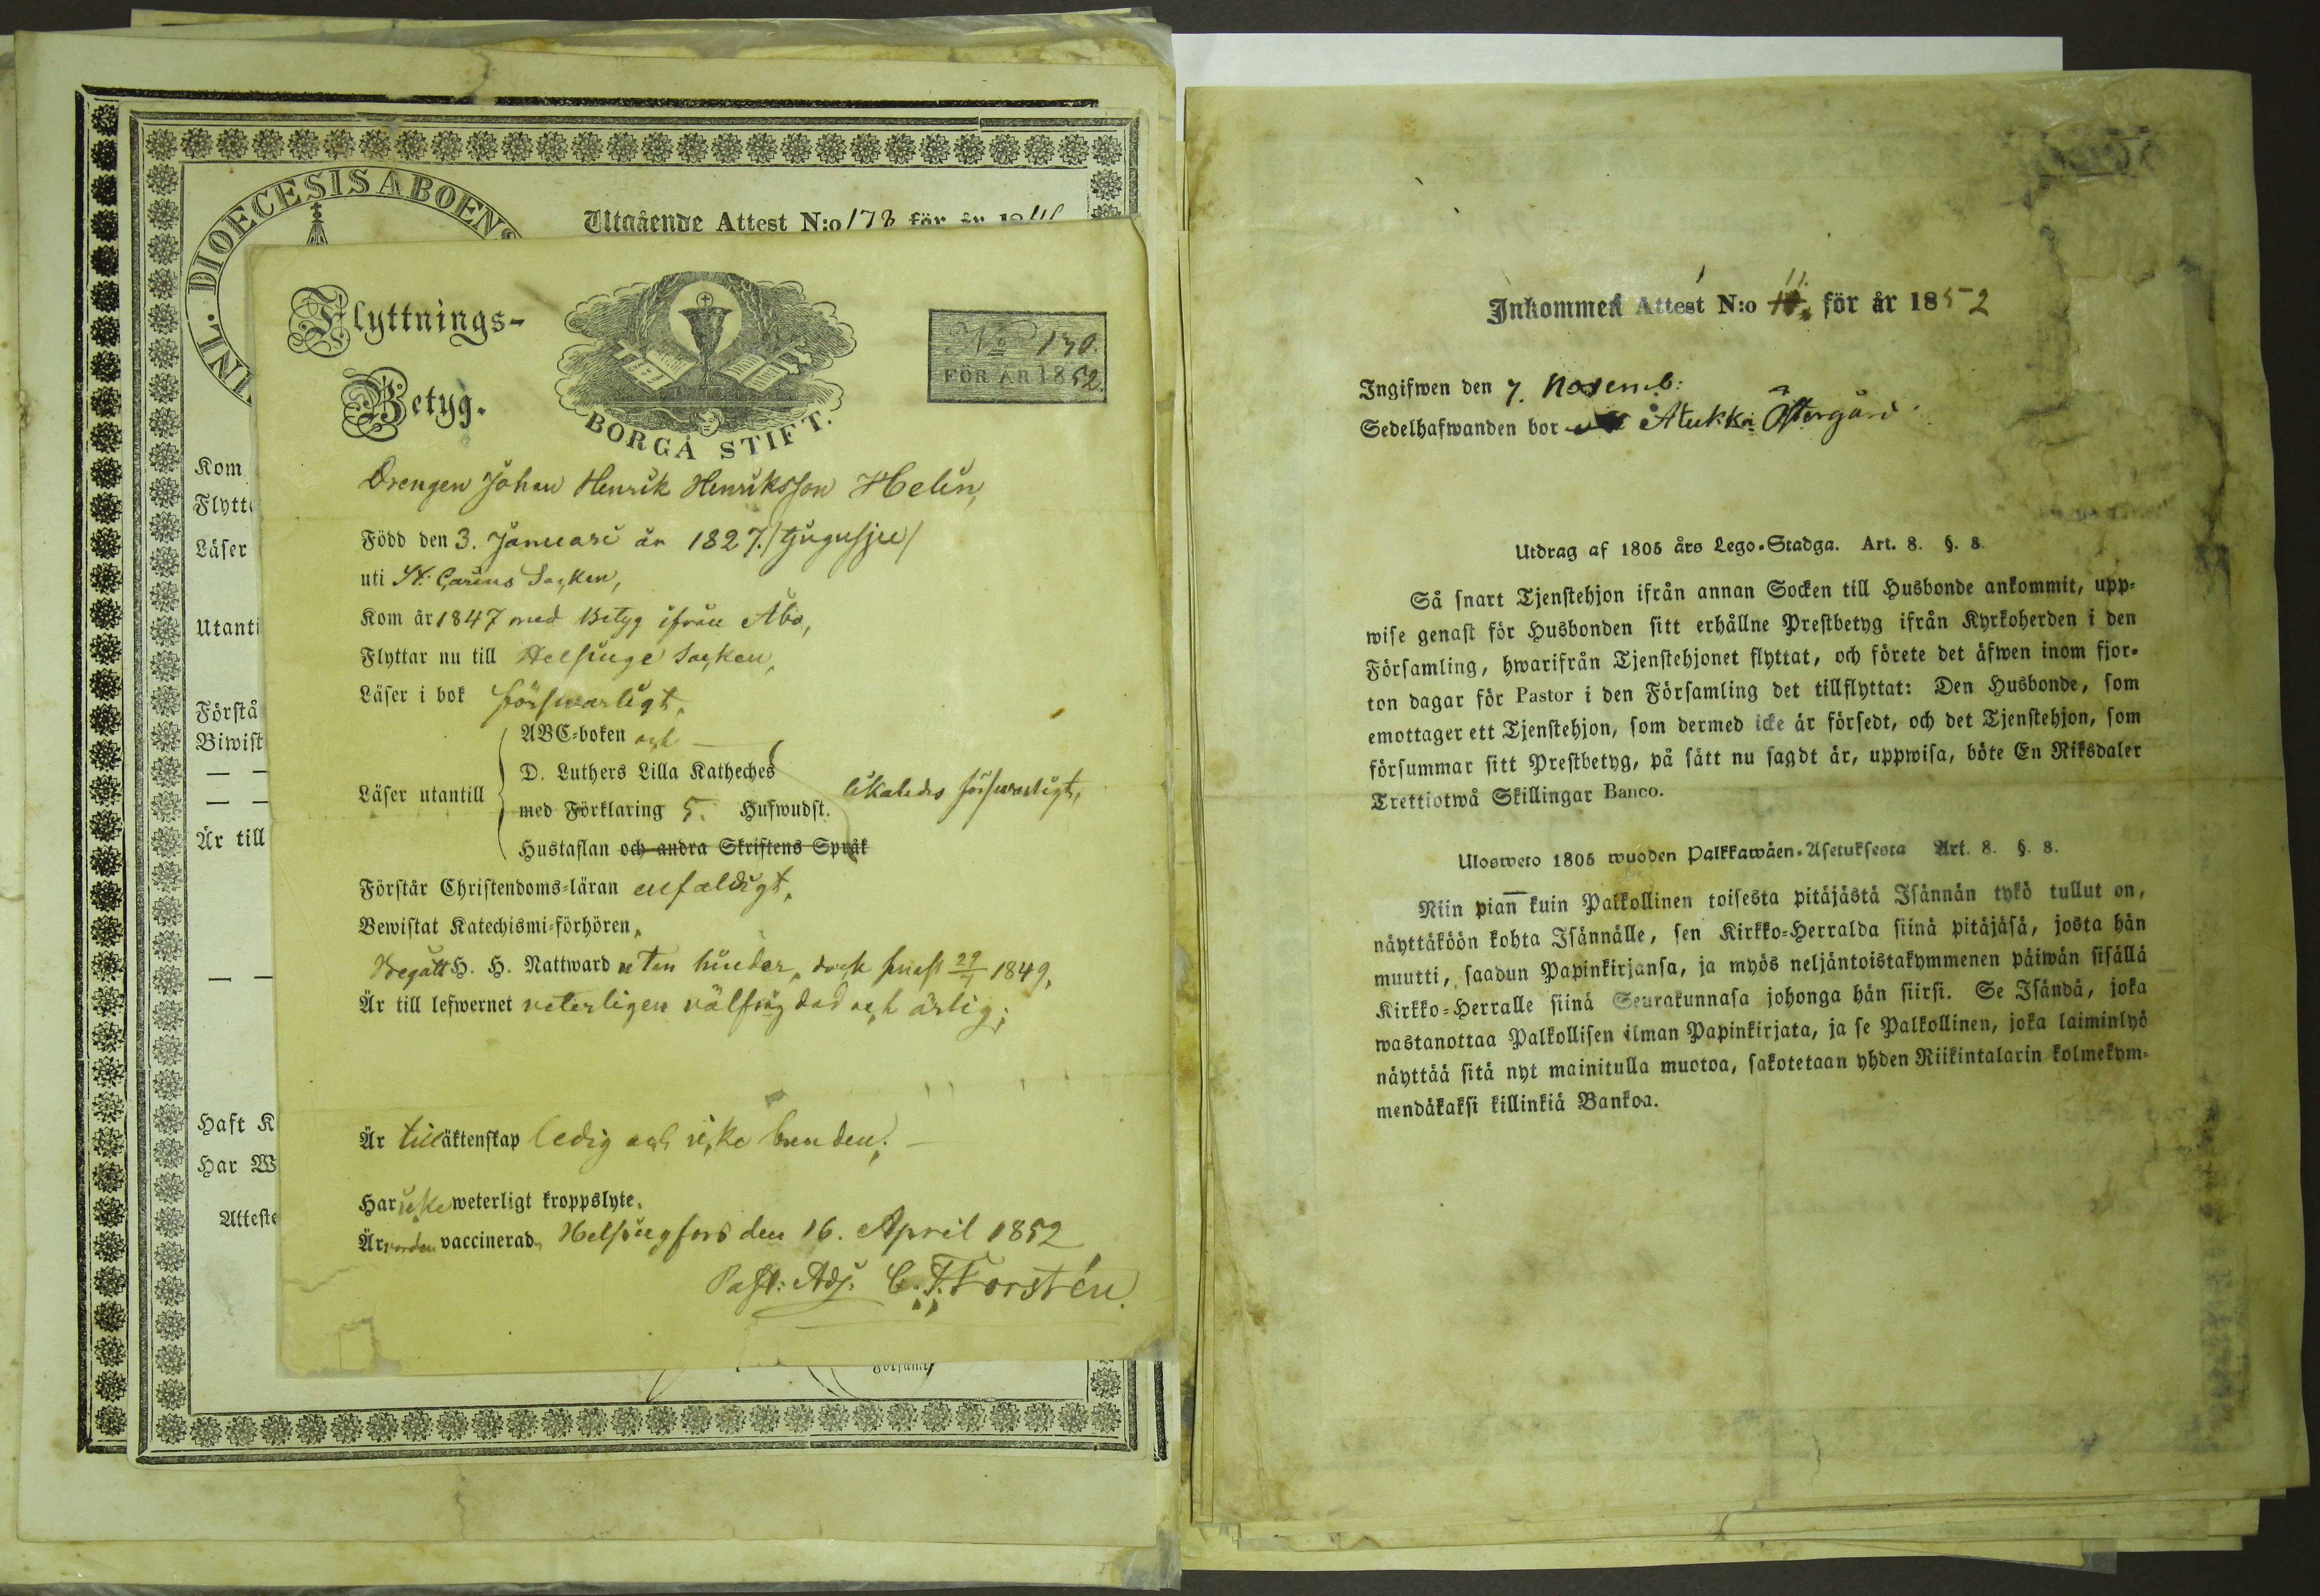 DIOECESIS ABOENS
INL.
Utgående Attest N:o 178 för år 18
Kom
Flytt
Läser
Utanti
Förstå
Biwist
Är till
Haft K
Har W
Atteste
Flyttnings-
Betyg.
BORGÅ STIFT.
No 130.
FÖR ÅR 1852.
Drengen Johan Henrik Henriksson Helin,
Född den 3. Januari år 1827. /tjugusju/
uti St. Carins Socken,
Kom år 1847 med Betyg ifrån Åbo,
Flyttar nu till Helsinge Socken,
Läser i bok försvarligt,
Läser utantill
ABC-boken och
D. Luthers Lilla Katheches
med Förklaring 5. Hufwudst.
Hustaflan och andra Skriftens Språk
likaledes försvarligt,
Förstår Christendoms-läran enfaldigt,
Bewistat Katechismi-förhören,
Begått H. H. Nattward utan hinder, dock senast 29/1 1849,
Är till lefwernet veterligen välfrägdad och ärlig;
Är till äktenskap ledig och icke bunden;
Har icke weterligt kroppslyte.
Är worden vaccinerad, Helsingfors den 16. April 1852
Past: Adj. C. F. Forstén.
Församl
Inkommen Attest N:o 11. för år 1852
Ingifwen den 7. Novemb:
Sedelhafwanden bor Östergård
Utdrag af 1805 års Lego-Stadga. Art. 8. §. 8.
Så snart Tjenstehjon ifrån annan Socken till Husbonde ankommit, upp-
wise genast för Husbonden sitt erhållne Prestbetyg ifrån Kyrkoherden i den
Församling, hwarifrån Tjenstehjonet flyttat, och förete det äfwen inom fjor-
ton dagar för Pastor i den Församling det tillflyttat: Den Husbonde, som
emottager ett Tjenstehjon, som dermed icke är försedt, och det Tjenstehjon, som
försummar sitt Prestbetyg, på sätt nu sagdt är, uppwisa, böte En Riksdaler
Trettiotwå Skillingar Banco.
Ulosweto 1805 wuoden Palkkawäen-Asetuksesta Art. 8. §. 8.
Niin pian̅ kuin Palkollinen toisesta pitäjästä Isännän tykö tullut on,
näyttäköön kohta Isännälle, sen Kirkko-Herralda siinä pitäjäsä, josta hän
muutti, saadun Papinkirjansa, ja myös neljäntoistakymmenen päiwän sisällä
Kirkko-Herralle siinä Seurakunnasa johonga hän siirsi. Se Isändä, joka
wastanottaa Palkollisen ilman Papinkirjata, ja se Palkollinen, joka laiminlyö
näyttää sitä nyt mainitulla muotoa, sakotetaan yhden Riikintalarin kolmekym-
mendäkaksi killinkiä Bankoa.